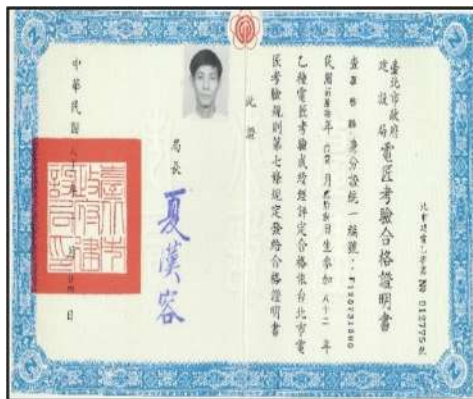 北市建電乙字第 No 012775 號
臺北市政府
建設局
電匠考驗合格證明書
查 身分證統一編號：
民國 年 月 日生參加八十二年
乙種電匠考驗成績經評定合格依台北市電
匠考驗規則第七條規定發給合格證明書
此證
局長 夏漢容
中華民國八十 年 月 日
臺北市政府建設局印